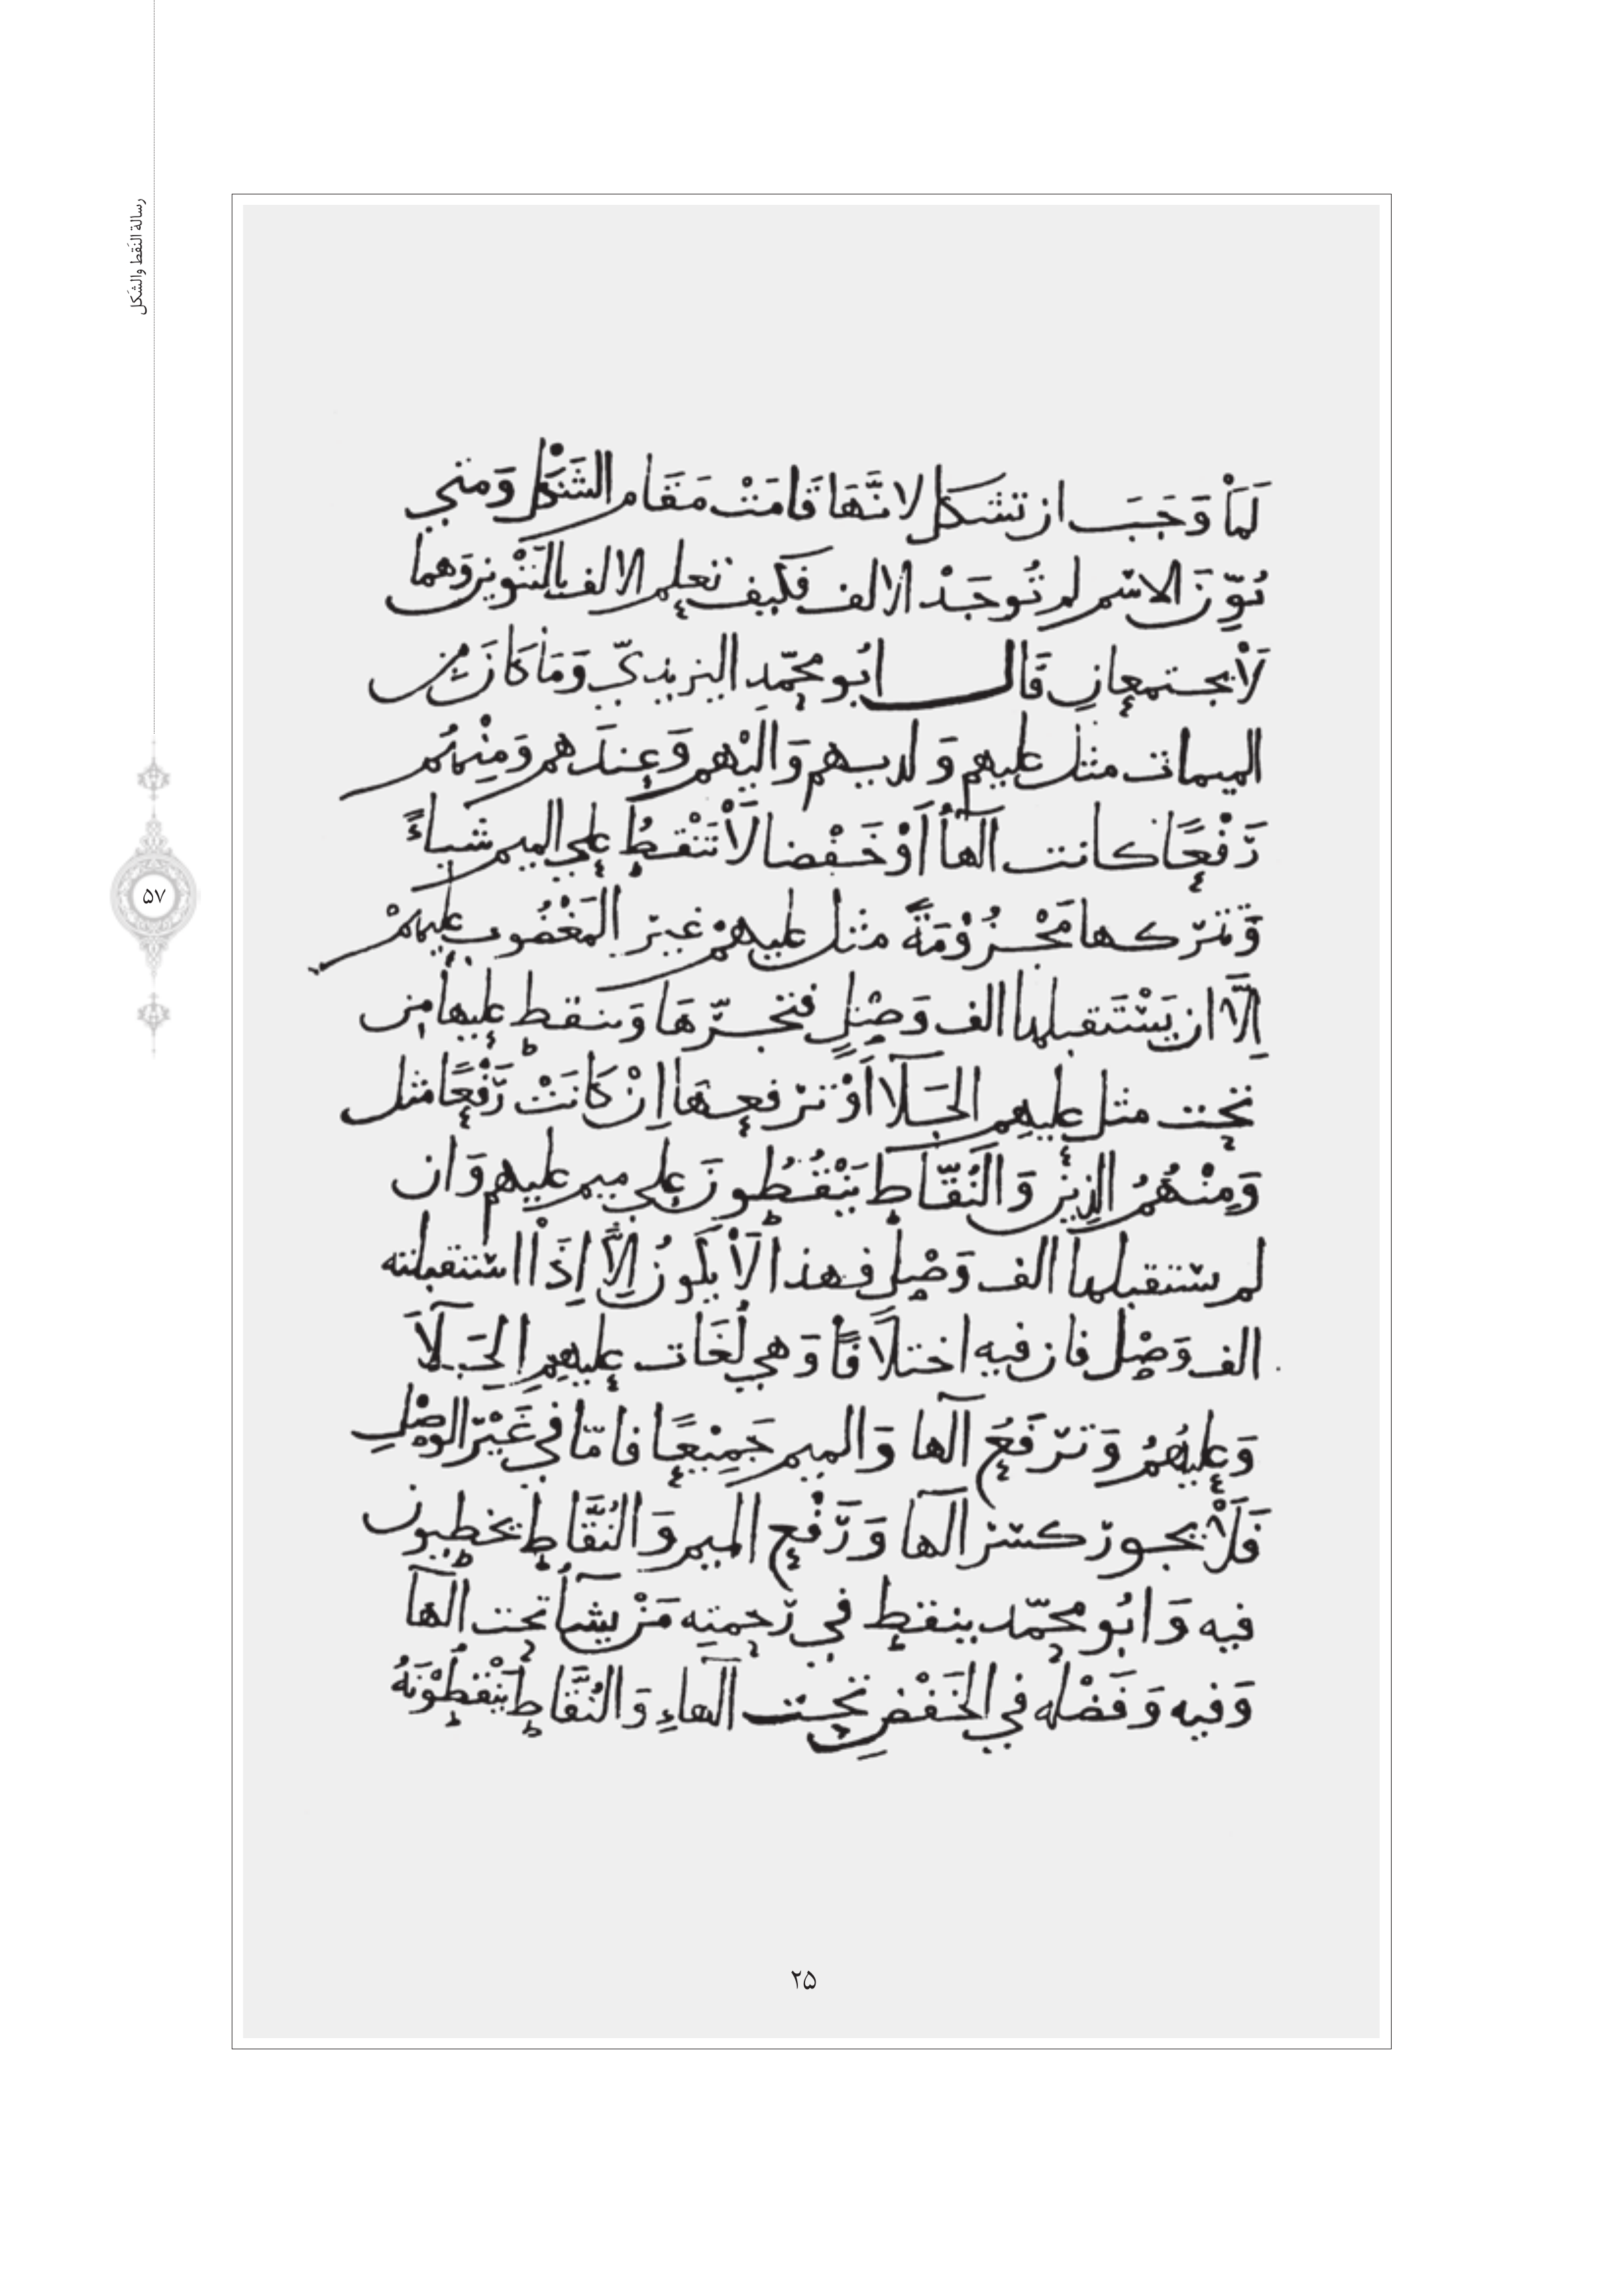 رسالة النقط والشكل
لَمَّا وَجَبَ ان تشكل لانَّهَا قَامَتْ مَقَام الشَّكْل وَمتي
نُوِّنَ الاسْم لم تُوجَدْ الالف فكيف تعلم الالف بالتَنْوين وَهما
لَا يجتمعانِ قَال ابُو محمّدِ اليزيديّ وَمَا كَانَ مِن
الميمات مثل عليهم وَ لديهم وَ اليْهم وَعِندَهم وَمِنْهُم
رَفْعًا كانت الهآ أَوْ خَفْضا لَا تَنْقطُ علي الميم شياءً
وَتترَكها مَجْزُوْمَةً مثل عليهمْ غير المَغْضُوب عليهمْ
اِلَّا ان يَسْتَقبلها الف وَصْلٍ فتجرّهَا وَتنقط عليها من
تحت مثل عليهمِ الجَلَآ أَوْ ترفعهَا اِنْ كَانَتْ رَفْعًا مثل
وَمِنْهُمُ الذِين وَ النُقّاط يَنْقُطُونَ علي ميم عليهم وَان
لم سْتقبلها الف وَصْل فهذا لَا يكُونُ اِلَّا اِذَا اسْتقبلته
الف وَصْل فان فيه اختلَافًا وَهي لُغَات عليهِمِ الجَلَآ
وَعليهُمُ وَترْفَعُ الها وَالميم جَمِيْعًا فامّا في غَيْرِ الوصْلِ
فَلَا يجوز كسْر الها وَ رَفْعِ الميم وَ النُقَّاط يخطيون
فيه وَ ابُو محمّد ينقط في رَحمته مَنْ يشآ تحت الهآ
وَفيه وَفَضْله في الخَفْضِ تحت الهاءِ وَ النُقَّاط يَنْقطُوْنَهُ
۲۵
۵۷